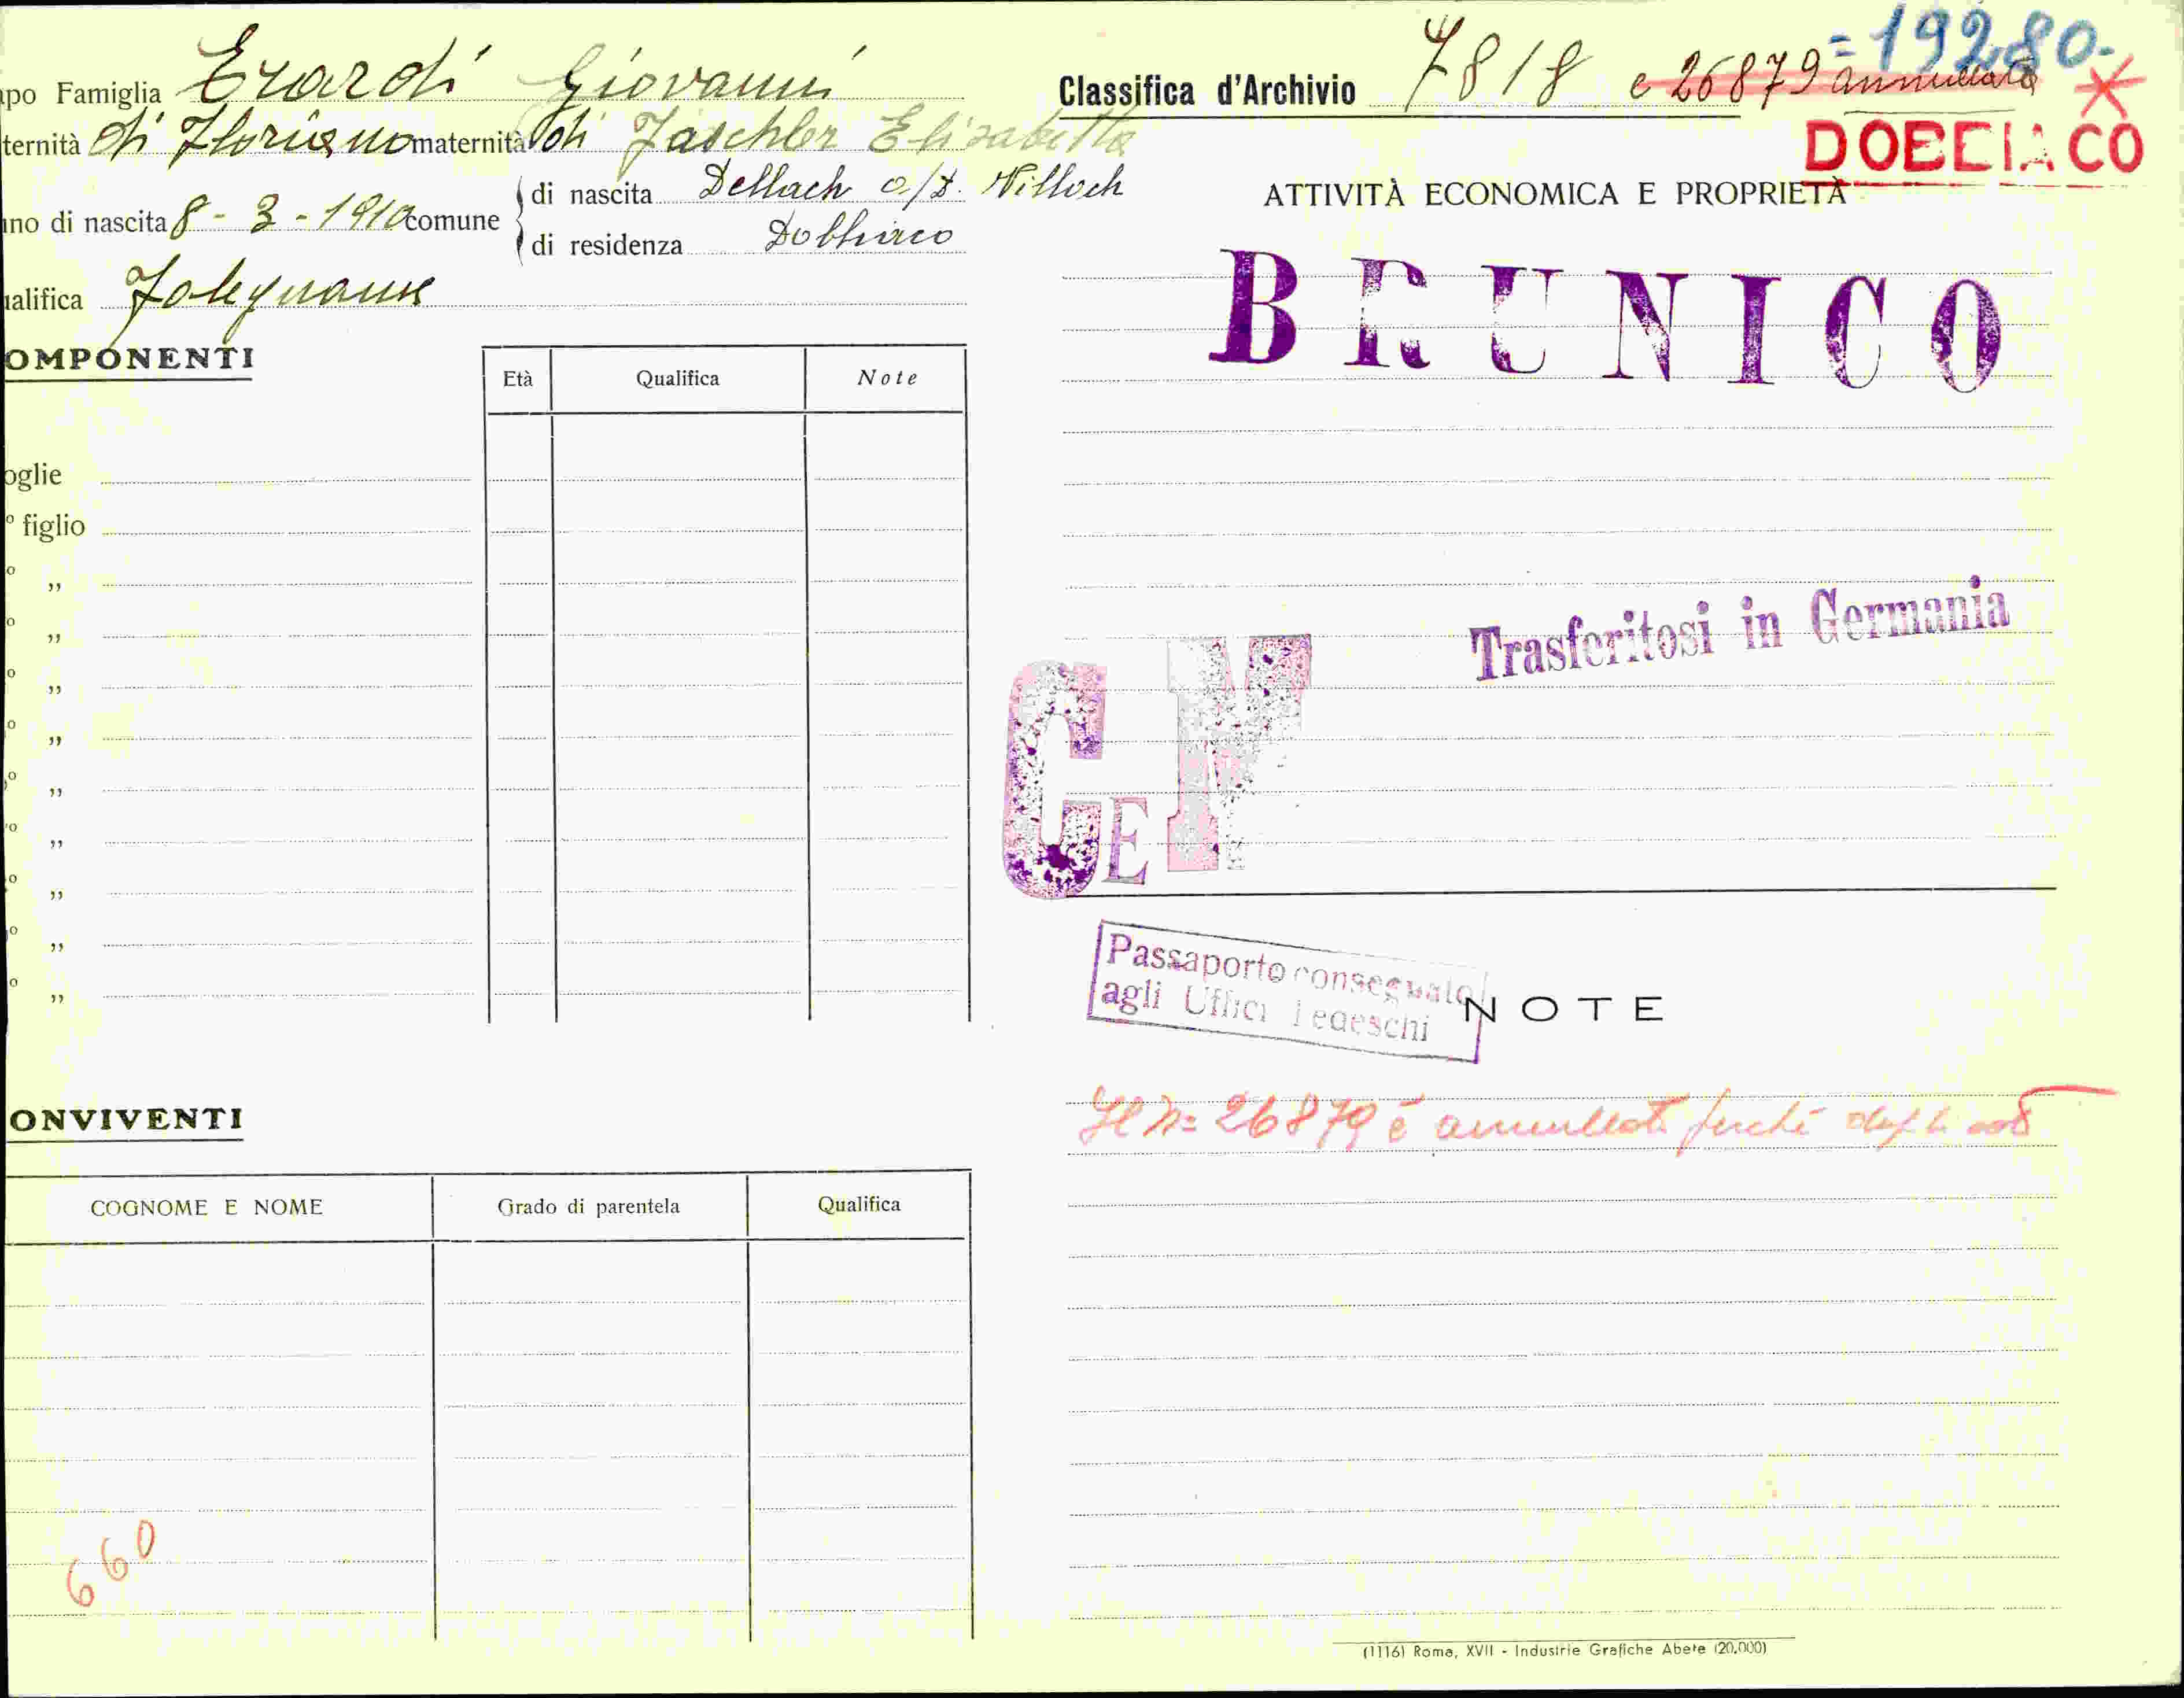 apo Famiglia Erardi Giovanni
ternità di Floriano maternità di Taschler Elisabetta
nno di nascita 8 - 3 - 1910 comune
di nascita Dellach o/D. Villach
di residenza Dobbiaco
ualifica Falegname
OMPONENTI
Età Qualifica Note
oglie
° figlio
° ,,
° ,,
° ,,
° ,,
° ,,
° ,,
° ,,
° ,,
° ,,
ONVIVENTI
COGNOME E NOME Grado di parentela Qualifica
660
Classifica d'Archivio 7818 e 26879 annullato
=19280.-
DOBBIACO
ATTIVITÀ ECONOMICA E PROPRIETÀ
BRUNICO
Trasferitosi in Germania
CE
Passaporto consegnato
agli Uffici Tedeschi
NOTE
Il N= 26879 è annullato perché
(1116) Roma, XVII - Industrie Grafiche Abete (20.000)